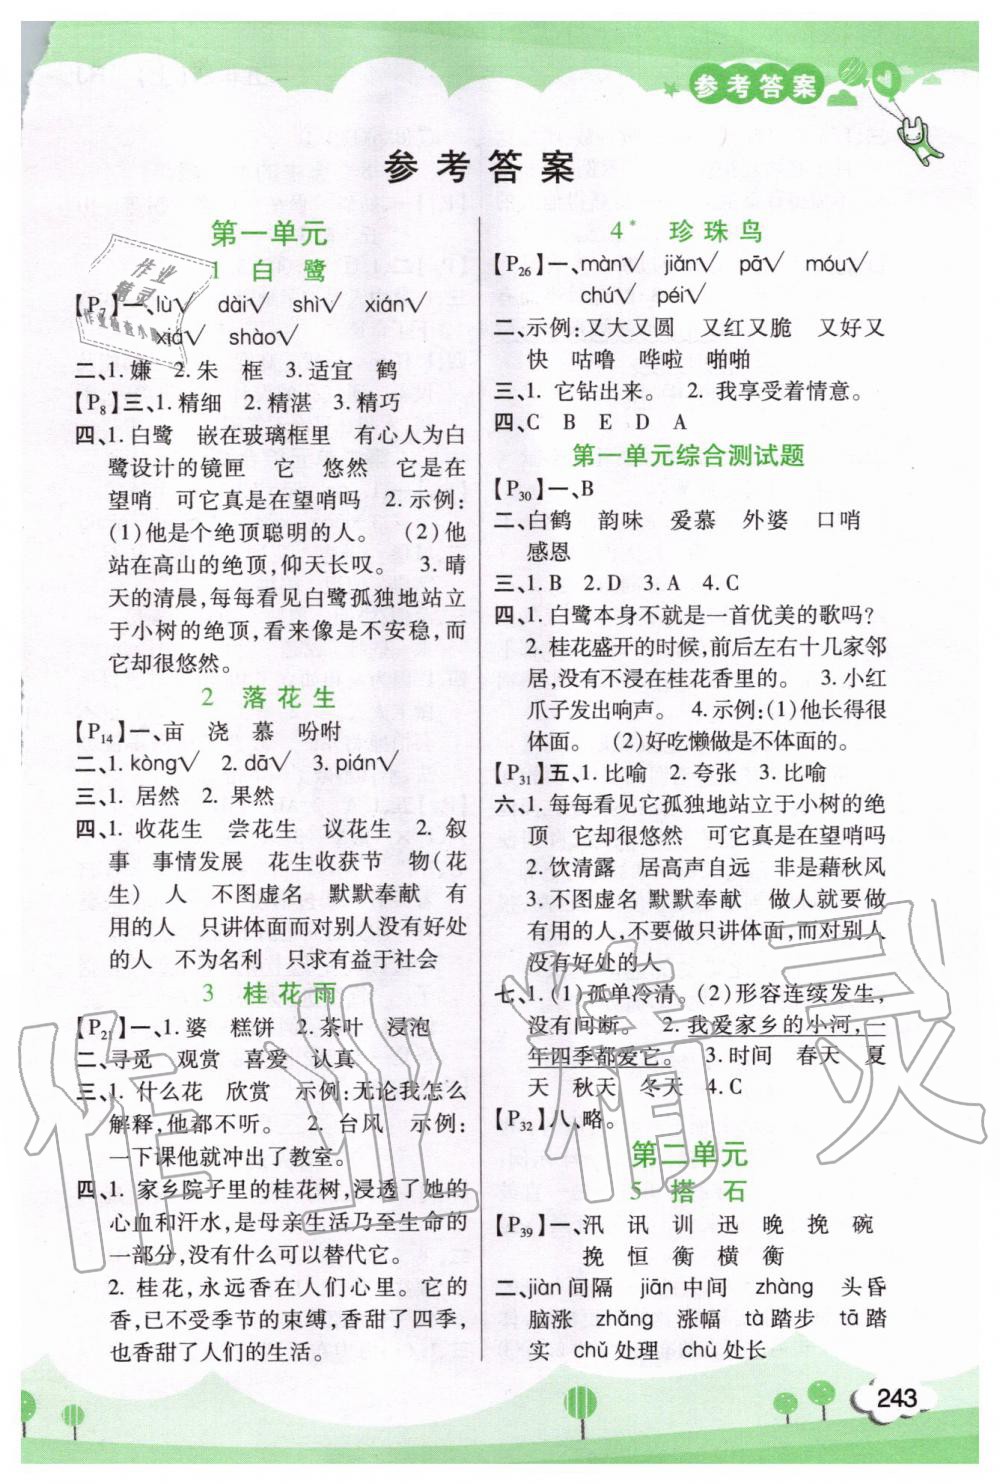 参考答案
参考答案
第一单元
1 白鹭
【P7】一、lù√ dài√ shì√ xián√
xiá√ shào√
二、1.嫌 2.朱 框 3.适宜 鹤
【P8】三、1.精细 2.精湛 3.精巧
四、1.白鹭 嵌在玻璃框里 有心人为白
鹭设计的镜匣 它 悠然 它是在
望哨 可它真是在望哨吗 2.示例:
(1)他是个绝顶聪明的人。 (2)他
站在高山的绝顶,仰天长叹。 3.晴
天的清晨,每每看见白鹭孤独地站立
于小树的绝顶,看来像是不安稳,而
它却很悠然。
2 落花生
【P14】一、亩 浇 慕 吩咐
二、1.kòng√ 2.dā√ 3.pián√
三、1.居然 2.果然
四、1.收花生 尝花生 议花生 2.叙
事 事情发展 花生收获节 物(花
生) 人 不图虚名 默默奉献 有
用的人 只讲体面而对别人没有好处
的人 不为名利 只求有益于社会
3 桂花雨
【P21】一、1.婆 糕饼 2.茶叶 浸泡
二、寻觅 观赏 喜爱 认真
三、1.什么花 欣赏 示例:无论我怎么
解释,他都不听。 2.台风 示例:
一下课他就冲出了教室。
四、1.家乡院子里的桂花树,浸透了她的
心血和汗水,是母亲生活乃至生命的
一部分,没有什么可以替代它。
2.桂花,永远香在人们心里。它的
香,已不受季节的束缚,香甜了四季,
也香甜了人们的生活。
4* 珍珠鸟
【P26】一、màn√ jiǎn√ pā√ móu√
chú√ péi√
二、示例:又大又圆 又红又脆 又好又
快 咕噜 哗啦 啪啪
三、1.它钻出来。 2.我享受着情意。
四、C B E D A
第一单元综合测试题
【P30】一、B
二、白鹤 韵味 爱慕 外婆 口哨
感恩
三、1.B 2.D 3.A 4.C
四、1.白鹭本身不就是一首优美的歌吗?
2.桂花盛开的时候,前后左右十几家邻
居,没有不浸在桂花香里的。 3.小红
爪子发出响声。 4.示例:(1)他长得很
体面。 (2)好吃懒做是不体面的。
【P31】五、1.比喻 2.夸张 3.比喻
六、1.每每看见它孤独地站立于小树的绝
顶 它却很悠然 可它真是在望哨吗
2.饮清露 居高声自远 非是藉秋风
3.不图虚名 默默奉献 做人就要做
有用的人,不要做只讲体面,而对别人
没有好处的人
七、1.(1)孤单冷清。(2)形容连续发生,
没有间断。 2.我爱家乡的小河,一
年四季都爱它。 3.时间 春天 夏
天 秋天 冬天 4.C
【P32】八、略。
第二单元
5 搭石
【P39】一、汛 讯 训 迅 晚 挽 碗
挽 恒 衡 横 衡
二、jiàn间隔 jiān中间 zhàng 头昏
脑涨 zhǎng 涨幅 tà踏步 tā踏
实 chǔ处理 chù处长
243
作业
精灵
作业检查小助手
作业精灵